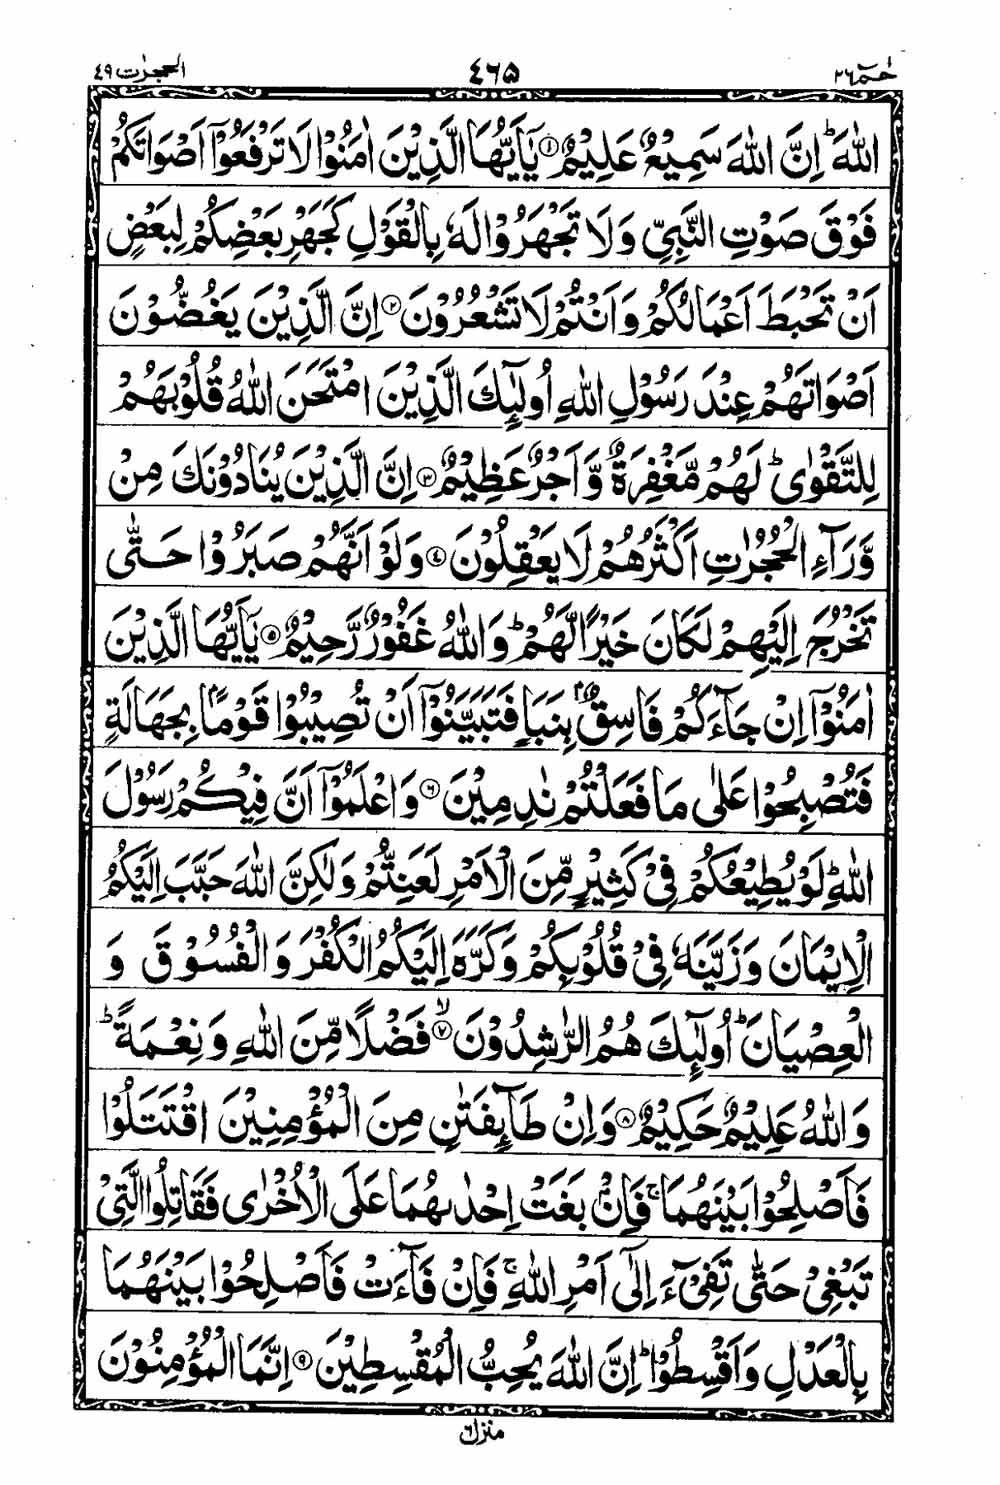 حٰمٓ ٢٦ ٤٦٥ الحجرٰت ٤٩
اللّٰهَ ؕ اِنَّ اللّٰهَ سَمِيْعٌ عَلِيْمٌ ۝١ يٰۤاَيُّهَا الَّذِيْنَ اٰمَنُوْا لَا تَرْفَعُوْۤا اَصْوَاتَكُمْ
فَوْقَ صَوْتِ النَّبِيِّ وَلَا تَجْهَرُوْا لَهٗ بِالْقَوْلِ كَجَهْرِ بَعْضِكُمْ لِبَعْضٍ
اَنْ تَحْبَطَ اَعْمَالُكُمْ وَاَنْتُمْ لَا تَشْعُرُوْنَ ۝٢ اِنَّ الَّذِيْنَ يَغُضُّوْنَ
اَصْوَاتَهُمْ عِنْدَ رَسُوْلِ اللّٰهِ اُولٰٓئِكَ الَّذِيْنَ امْتَحَنَ اللّٰهُ قُلُوْبَهُمْ
لِلتَّقْوٰى ؕ لَهُمْ مَّغْفِرَةٌ وَّاَجْرٌ عَظِيْمٌ ۝٣ اِنَّ الَّذِيْنَ يُنَادُوْنَكَ مِنْ
وَّرَآءِ الْحُجُرٰتِ اَكْثَرُهُمْ لَا يَعْقِلُوْنَ ۝٤ وَلَوْ اَنَّهُمْ صَبَرُوْا حَتّٰى
تَخْرُجَ اِلَيْهِمْ لَكَانَ خَيْرًا لَّهُمْ ؕ وَاللّٰهُ غَفُوْرٌ رَّحِيْمٌ ۝٥ يٰۤاَيُّهَا الَّذِيْنَ
اٰمَنُوْۤا اِنْ جَآءَكُمْ فَاسِقٌۢ بِنَبَاٍ فَتَبَيَّنُوْۤا اَنْ تُصِيْبُوْا قَوْمًۢا بِجَهَالَةٍ
فَتُصْبِحُوْا عَلٰى مَا فَعَلْتُمْ نٰدِمِيْنَ ۝٦ وَاعْلَمُوْۤا اَنَّ فِيْكُمْ رَسُوْلَ
اللّٰهِ ؕ لَوْ يُطِيْعُكُمْ فِيْ كَثِيْرٍ مِّنَ الْاَمْرِ لَعَنِتُّمْ وَلٰكِنَّ اللّٰهَ حَبَّبَ اِلَيْكُمُ
الْاِيْمَانَ وَزَيَّنَهٗ فِيْ قُلُوْبِكُمْ وَكَرَّهَ اِلَيْكُمُ الْكُفْرَ وَالْفُسُوْقَ وَ
الْعِصْيَانَ ؕ اُولٰٓئِكَ هُمُ الرّٰشِدُوْنَ ۙ۝٧ فَضْلًا مِّنَ اللّٰهِ وَنِعْمَةً ؕ
وَاللّٰهُ عَلِيْمٌ حَكِيْمٌ ۝٨ وَاِنْ طَآئِفَتٰنِ مِنَ الْمُؤْمِنِيْنَ اقْتَتَلُوْا
فَاَصْلِحُوْا بَيْنَهُمَا ۚ فَاِنْۢ بَغَتْ اِحْدٰىهُمَا عَلَى الْاُخْرٰى فَقَاتِلُوا الَّتِيْ
تَبْغِيْ حَتّٰى تَفِيْٓءَ اِلٰۤى اَمْرِ اللّٰهِ ۚ فَاِنْ فَآءَتْ فَاَصْلِحُوْا بَيْنَهُمَا
بِالْعَدْلِ وَاَقْسِطُوْا ؕ اِنَّ اللّٰهَ يُحِبُّ الْمُقْسِطِيْنَ ۝٩ اِنَّمَا الْمُؤْمِنُوْنَ
منزل ٦